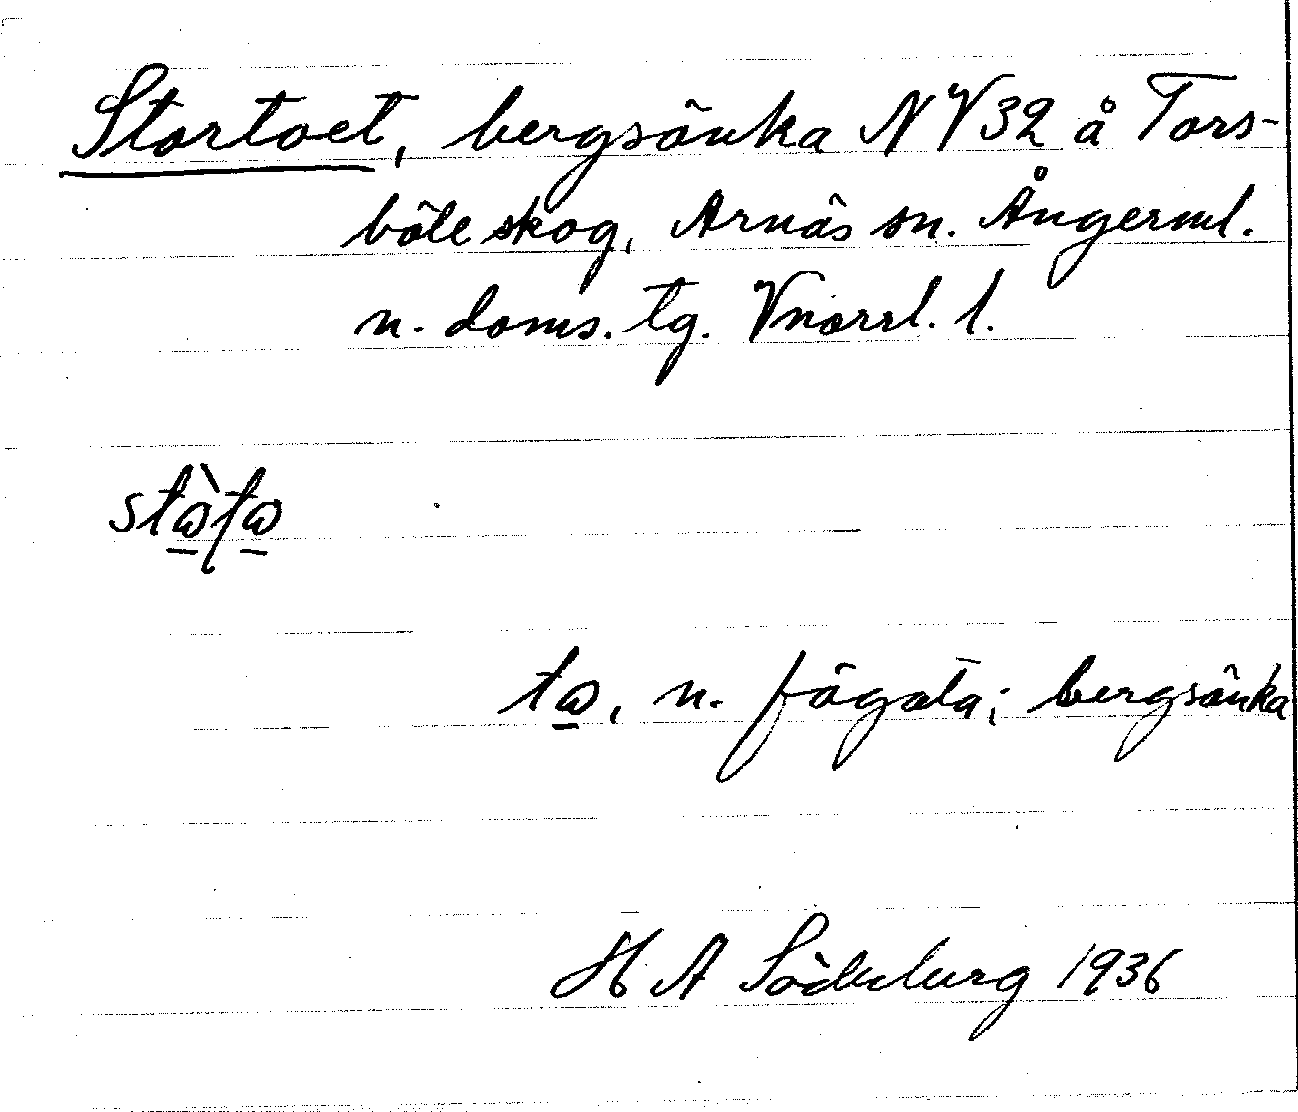 Stortoet, bergsänka NV32 å Tors-
böle skog, Arnäs sn. Ångerml.
n. doms. tg. Vnorrl. l.
stꞷ̠̀ʈꞷ̠
tꞷ̠, n. fägata; bergsänka
H A Söderberg 1936